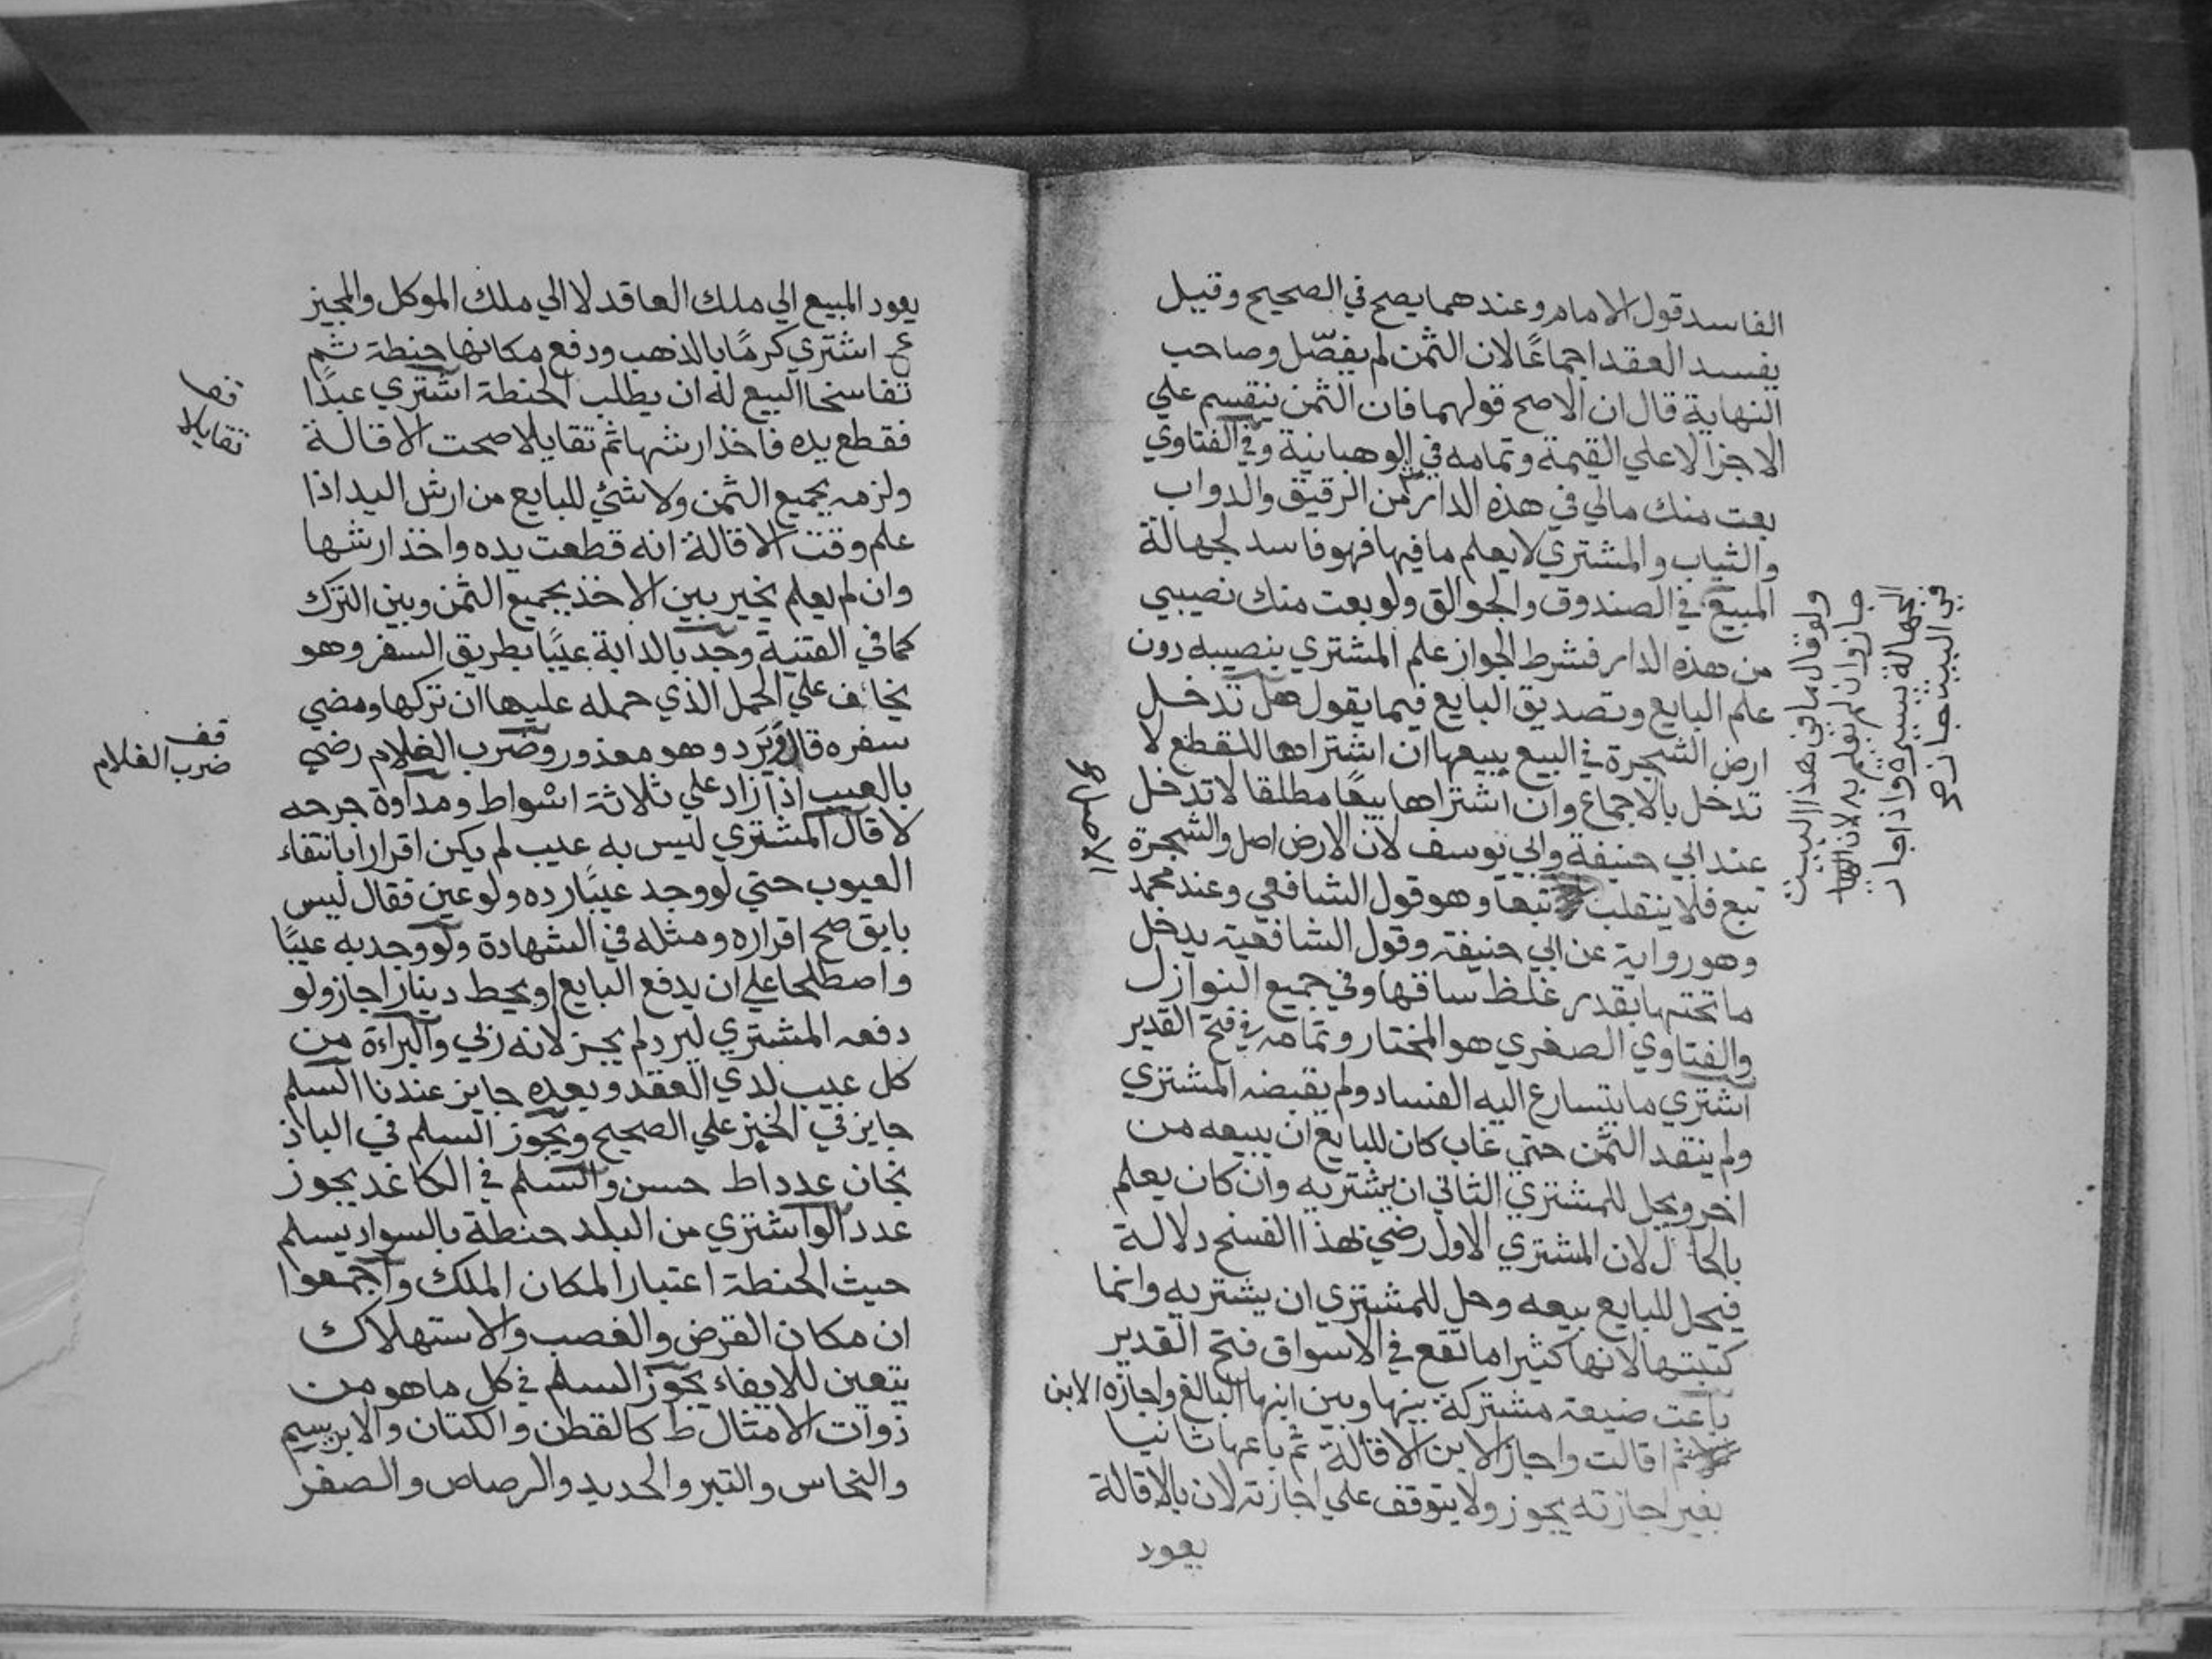 الفاسد قول الامام وعندهما يصح في الصحيح وقيل
يفسد العقد اجماعًا لان الثمن لم يفصّل وصاحب
النهاية قال ان الاصح قولهما فان الثمن ينقسم علي
الاجزا لا علي القيمة وتمامه في الوهبانية وفي الفتاوي
بعت منك مالي في هذه الدار من الرقيق والدواب
والثياب والمشتري لا يعلم ما فيها فهو فاسد لجهالة
المبيع في الصندوق والجوالق ولو بعت منك نصيبي
من هذه الدار فشرط الجواز علم المشتري بنصيبه دون
علم البايع وتصديق البايع فيما يقول هل تدخل
ارض الشجرة في البيع ببيعها ان اشتراها للقطع لا
تدخل بالاجماع وان اشتراها بيعًا مطلقا لا تدخل
عند ابي حنيفة وابي يوسف لان الارض اصل والشجرة
تبع فلا ينقلب تبعا وهو قول الشافعي وعند محمد
وهو رواية عن ابي حنيفة وقول الشافعية يدخل
ما تحتها بقدر غلظ ساقها وفي جميع النوازل
والفتاوي الصغري هو المختار وتمامه في فتح القدير
اشتري ما يتسارع اليه الفساد ولم يقبضه المشتري
ولم ينقد الثمن حتي غاب كان للبايع ان يبيعه من
اخر ويحل للمشتري الثاني ان يشتريه وان كان يعلم
بالحال لان المشتري الاول رضي بهذا الفسخ دلالة
فيحل للبايع بيعه وحل للمشتري ان يشتريه وانما
كتبتها لانها كثيرا ما تقع في الاسواق فتح القدير
باعت ضيعة مشتركة بينها وبين ابنها البالغ واجازه الابن
ثم اقالت واجاز الابن الاقالة ثم باعها ثانيا
بغير اجازته يجوز ولا يتوقف علي اجازته لان بالاقالة
يعود
ولو قال ما في هذا البيت
جاز وان لم يعلم به لان
الجهالة يسيرة واذا جاز
في البيت جاز
الاصل
يعود المبيع الي ملك العاقد لا الي ملك الموكل والمجيز
اشتري كرمًا بالذهب ودفع مكانها حنطة ثم
تفاسخا البيع له ان يطلب الحنطة اشتري عبدًا
فقطع يده فاخذ ارشها ثم تقايلا صحت الاقالة
ولزمه بجميع الثمن ولا شئي للبايع من ارش اليد اذا
علم وقت الاقالة انه قطعت يده واخذ ارشها
وان لم يعلم يخير بين الاخذ بجميع الثمن وبين الترك
كما في القنية وجد بالدابة عيبًا بطريق السفر وهو
يخائف علي الحمل الذي حمله عليها ان تركها ومضي
سفره قال ويرد وهو معذور وضرب الغلام رضي
بالعيب اذا زاد علي ثلاثة اشواط ومداوة جرحه
لا قال المشتري ليس به عيب لم يكن اقرارا بانتفاء
العيوب حتي لو وجد عيبًا رده ولو عين فقال ليس
بابق صح اقراره ومثله في الشهادة ولو وجد به عيبًا
واصطلحا علي ان يدفع البايع او يحط دينارا جاز ولو
دفعه المشتري ليرد لم يجز لانه ربي والبراءة من
كل عيب لدي العقد وبعده جايز عندنا السلم
جايز في الخبز علي الصحيح ويجوز السلم في الباذ
نجان عددا ط حسن والسلم في الكاغد يجوز
عددا لو اشتري من البلد حنطة بالسواد يسلم
حيث الحنطة اعتبارا لمكان الملك واجمعوا
ان مكان القرض والغصب والاستهلاك
يتعين للايفاء يجوز السلم في كل ما هو من
ذوات الامثال ط كالقطن والكتان والابريسم
والنحاس والتبر والحديد والرصاص والصفر
تقايلا
قف
ضرب الغلام